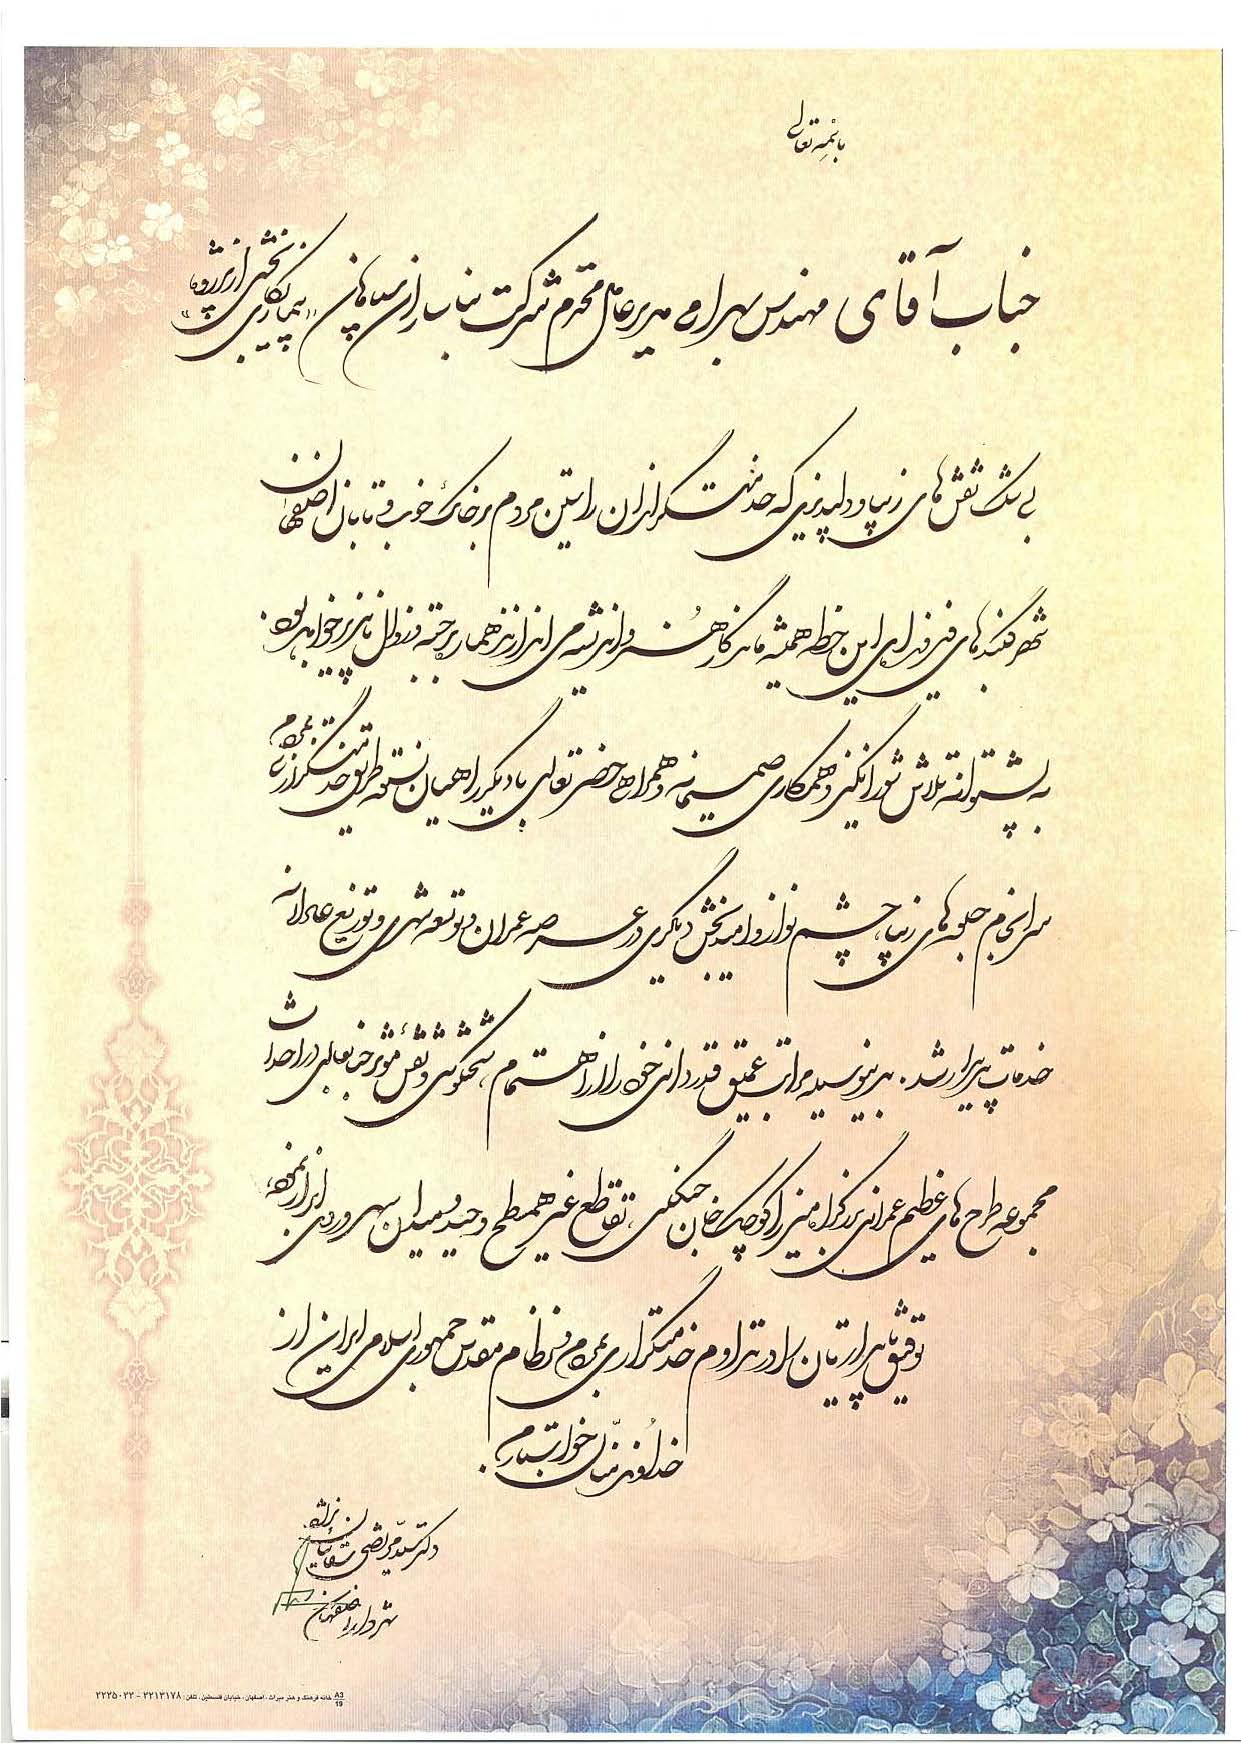 باسمه تعالی
جناب آقای مهندس بهرامی مدیرعامل محترم شرکت بناب سازان سامان «پیمانکار بخشی از پروژه»
بی شک نقش های زیبا و دلپذیری که خدمتگزاران راستین مردم بر خاک خوب و تابان اصفهان
شهر گنبدهای فیروزه ای این خطه همیشه ماندگار هنر و اندیشه می اندازند هماره برجسته و زوال ناپذیر خواهد بود.
به پشتوانه تلاش شورانگیز و همکاری صمیمانه و همراهی حضرتعالی با دیگر راهیان نستوه طریق خدمتگزاری بمردم
سرانجام جلوه های زیبا، چشم نواز و امیدبخش دیگری در عرصه عمران و توسعه شهری و توزیع عادلانه
خدمات پدیدار شد. بدینوسیله مراتب عمیق قدردانی خود را از اهتمام، سختکوشی و نقش مؤثر جنابعالی در احداث
مجموعه طرح های عظیم عمرانی بزرگراه میرزا کوچک خان جنگلی، تقاطع غیر همسطح وحید و میدان سهروردی ابراز نموده،
توفیق پایدارتان را در تداوم خدمتگزاری بمردم و نظام مقدس جمهوری اسلامی ایران از
خداوند منان خواستارم.
دکتر سید مرتضی سقائیان نژاد
شهردار اصفهان
A3
19
خانه فرهنگ و هنر میراث، اصفهان، خیابان فلسطین، تلفن: ۲۲۱۳۱۷۸ - ۲۲۲۵۰۲۲